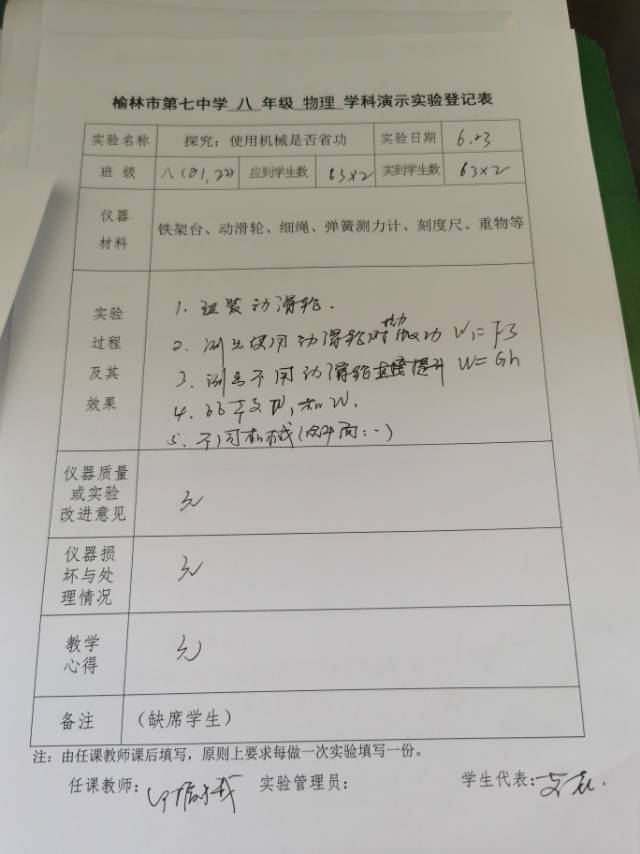 榆林市第七中学 八 年级 物理 学科演示实验登记表
实验名称 探究：使用机械是否省功 实验日期 6.23
班 级 八(21,22) 应到学生数 63×2 实到学生数 63×2
仪器
材料
铁架台、动滑轮、细绳、弹簧测力计、刻度尺、重物等
实验
过程
及其
效果
1. 组装动滑轮.
2. 测出使用动滑轮时拉力做功 W₁=FS
3. 测出不用动滑轮直接提升 W=Gh
4. 比较W₁和W.
5. 不同机械(斜面:)
仪器质量
或实验
改进意见
无
仪器损
坏与处
理情况
无
教学
心得
无
备注 （缺席学生）
注：由任课教师课后填写，原则上要求每做一次实验填写一份。
任课教师： 实验管理员： 学生代表：